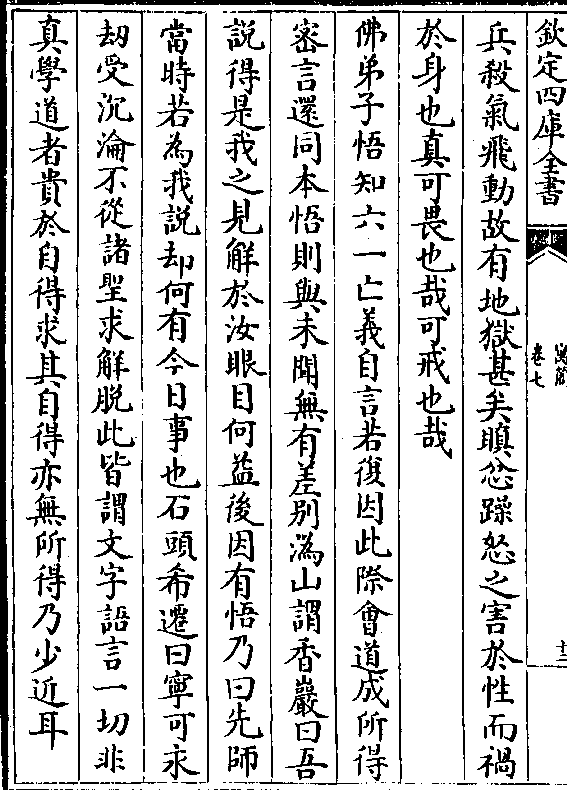 欽定四庫全書
卷七
十三
兵殺氣飛動故有地獄甚矣瞋忿躁怒之害於性而禍
於身也真可畏也哉可戒也哉
佛弟子悟知六一亡義自言若復因此際會道成所得
密言還同本悟則與未聞無有差別溈山謂香巖曰吾
說得是我之見解於汝眼目何益後因有悟乃曰先師
當時若為我説却何有今日事也石頭希遷曰寧可永
劫受沉淪不從諸聖求解脫此皆謂文字語言一切非
真學道者貴於自得求其自得亦無所得乃少近耳